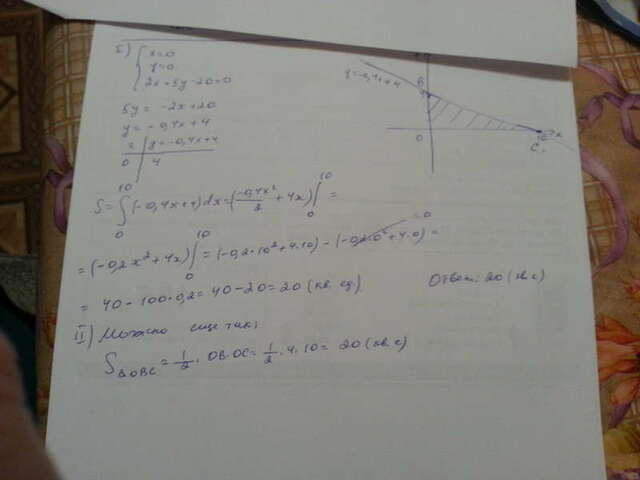 I)
x=0
y=0
2x+5y-20=0
5y = -2x+20
y = -0,4x+4
x | y=-0,4x+4
0 | 4
S= ∫₀¹⁰ (-0,4x+4)dx=(-0,4x²/2 +4x)|₀¹⁰ =
= (-0,2x²+4x)|₀¹⁰ = (-0,2·10²+4·10) - (-0,2·0²+4·0) =
=0
= 40 - 100·0,2= 40-20=20 (кв. ед)
Ответ: 20 (кв. с)
II) Можно еще так:
S△OBC = 1/2 · OB·OC= 1/2 · 4 · 10= 20 (кв. с)
y=-0,4x+4
B
4
0
10
x
C